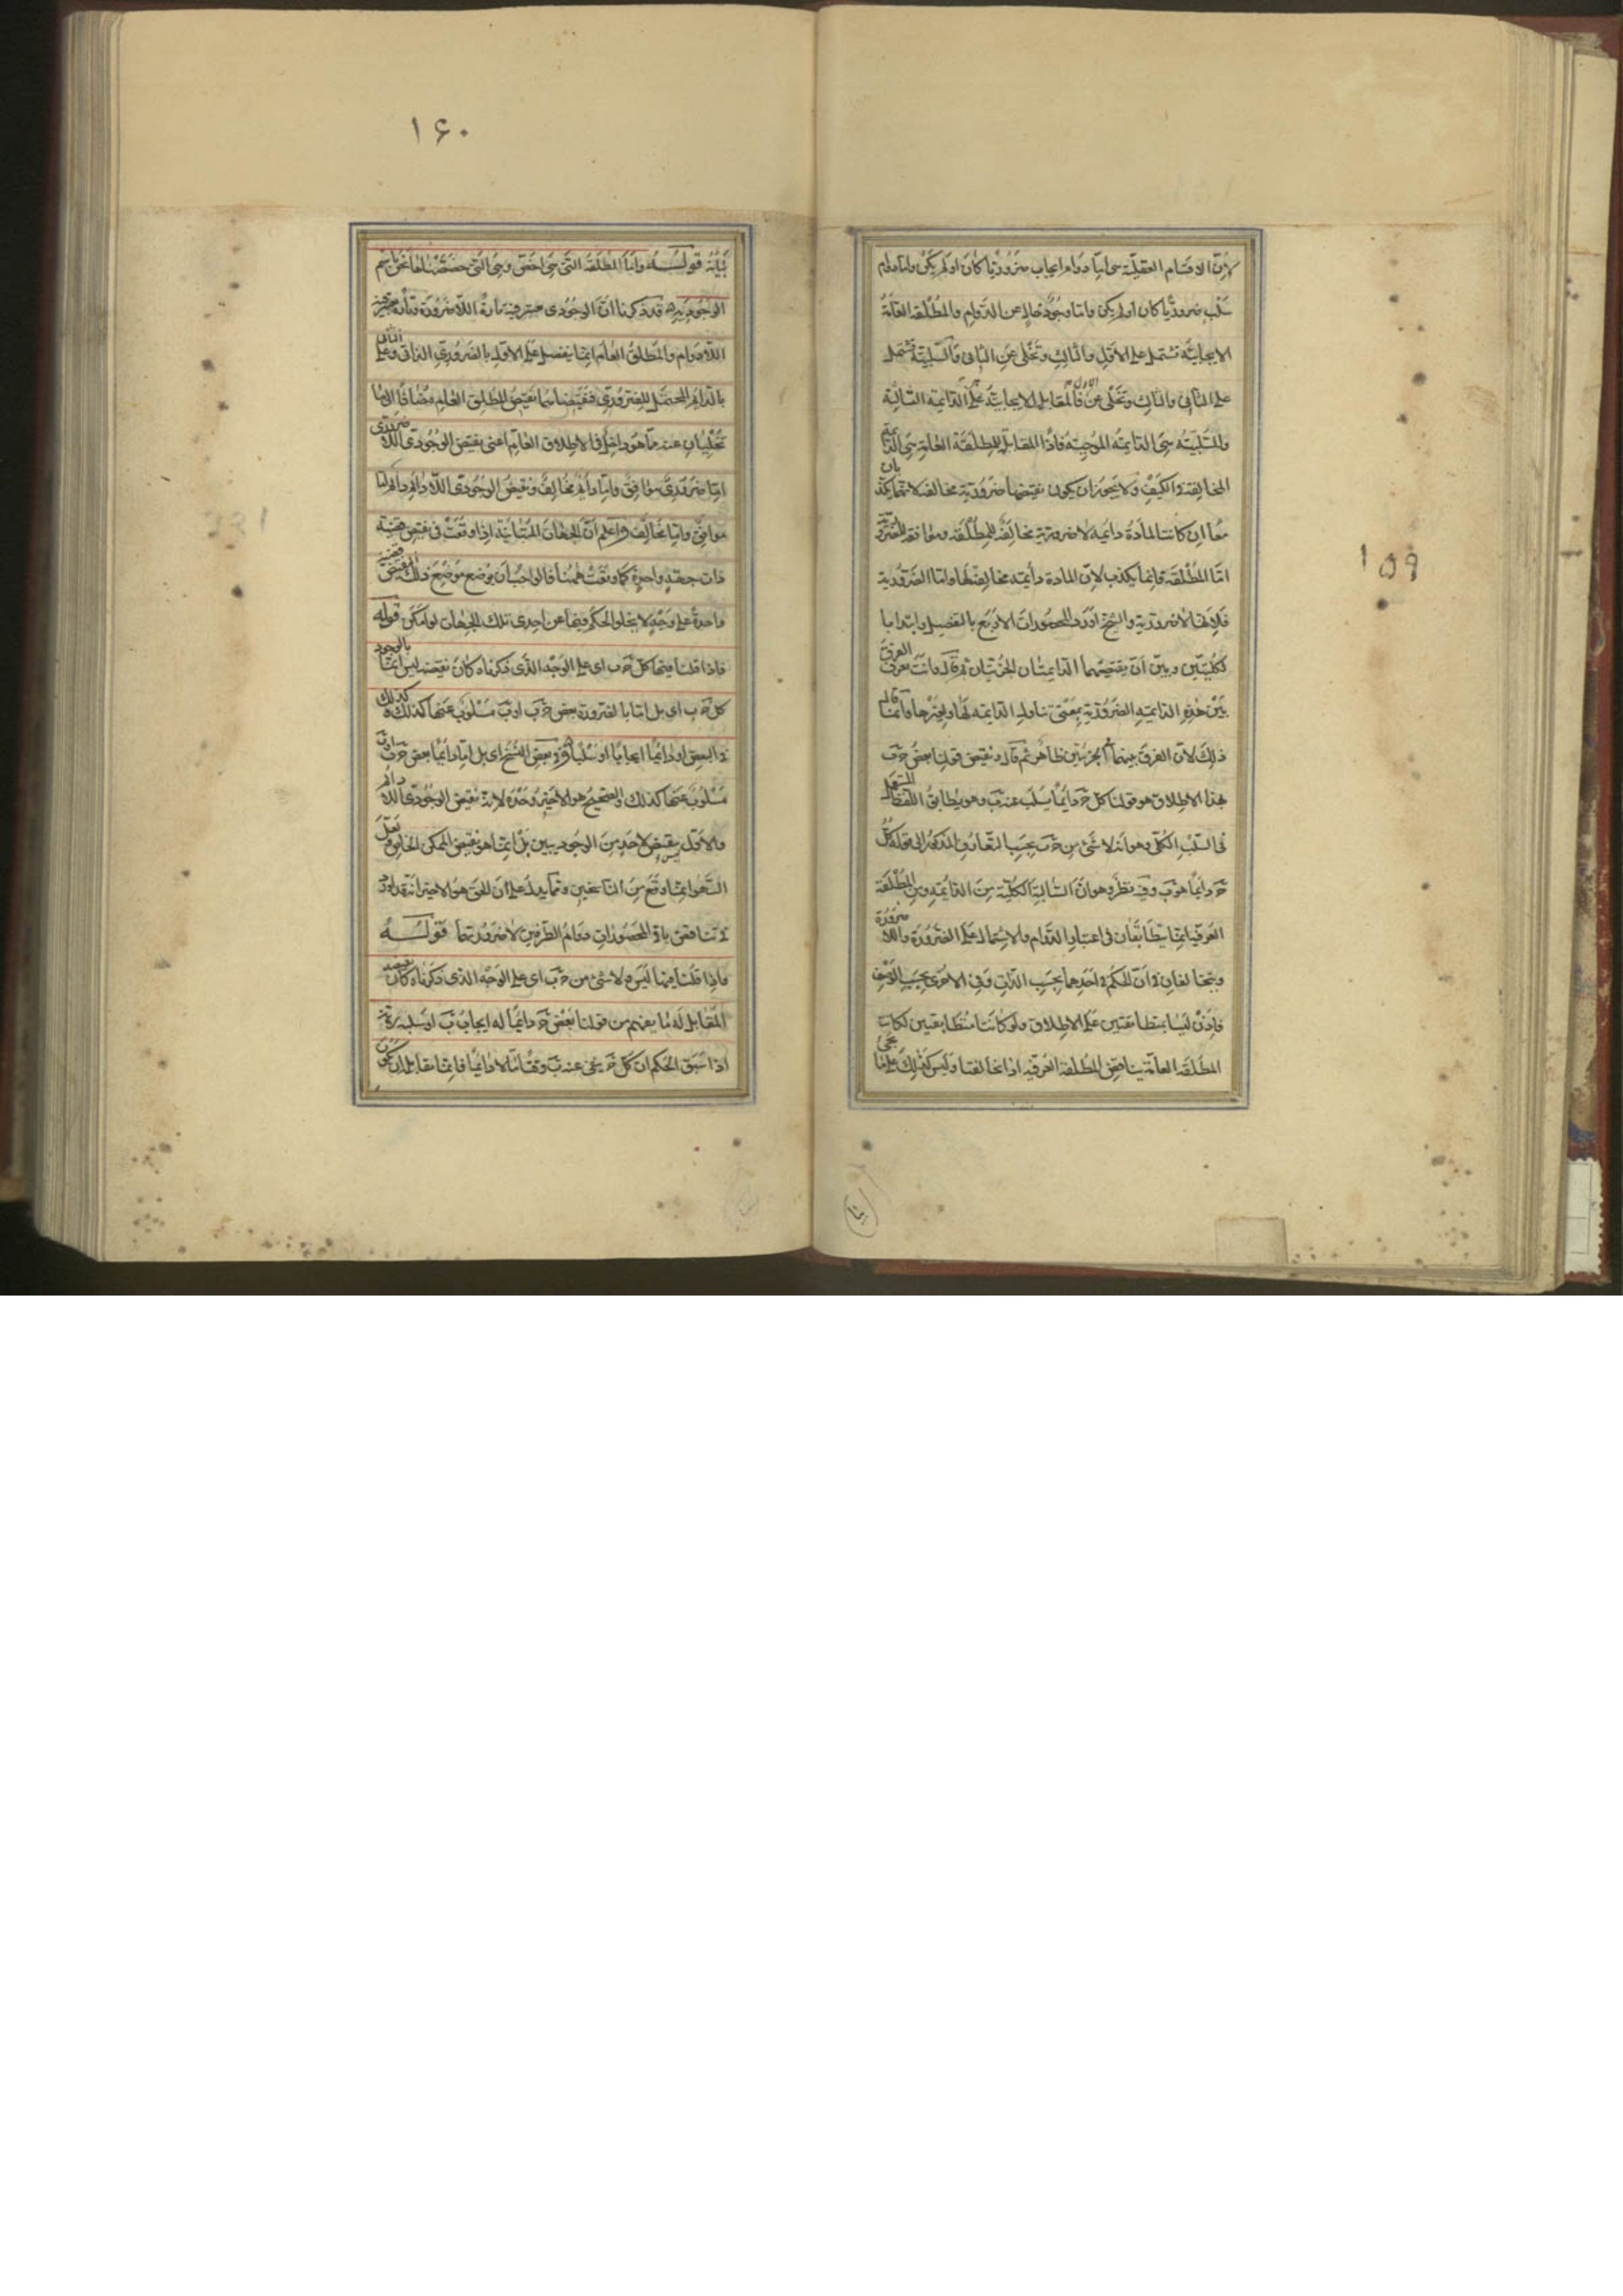 ١٥٩
لان الاقسام العقلية هى اما دوام ايجاب ضروريا كان او لم يكن واما دوام
سلب ضروريا كان او لم يكن واما وجود خال عن الدوام والمطلقة العامة
الايجابية تشتمل على الاول والثالث وتخلى عن الثانى والسلبية تشتمل
على الثانى والثالث وتخلى عن الاول فالمقابل للايجابية هى الدائمة السالبة
وللسلبية هى الدائمة الموجبة فاذا المقابل للمطلقة العامة هى الدائمة
المخالفة فى الكيف ولا يجوز ان يكون نقيضها ضرورية مخالفة لانهما يكذبان
معا ان كانت المادة دائمة لا ضرورية مخالفة للمطلقة وموافقة للضرورية
اما المطلقة فانما يكذب لان المادة دائمة مخالفة لها واما الضرورية
فلانها لا ضرورية والشيخ اورد المحصورات الاربع بالتفصيل وابتدا با
لكليتين وبين ان نقيضهما الدائمتان الجزئيتان ثم قال وانت تعرف الفرق
بين هذه الدائمة الضرورية بمعنى تناول الدائمة لها ولغيرها وانما قال
ذلك لان الفرق بينهما فى الجزئيين ظاهر ثم قال ونقيض قولنا بعض ج ب
بهذا الاطلاق هو قولنا كل ج دائما يسلب عنه ب وهو يطابق اللفظ المستعمل
فى السلب الكلى وهو انه لا شئ من ج ب بحسب التعارف المذكور الى قوله كل
ج دائما هو ب وفيه نظر وهو ان السالبة الكلية من الدائمة ومن المطلقة
العرفية انما يتطابقان فى اعتبار الدوام والاشتمال على الضرورة واللا ضرورة
ويتخالفان فى ان الحكم فى احدهما بحسب الذات وفى الاخرى بحسب الوصف
فاذن ليسا بمتطابقتين على الاطلاق ولو كانتا متطابقتين لكانت
المطلقة العامة يناقض المطلقة العرفية اذا تخالفتا وليس كذلك على ما يجئ
١۶٠
بيانه قوله واما المطلقة التى هى اخص وهى التى خصصناها نحن باسم
الوجودية قد ذكرنا ان الوجودى يعتبر فيه تارة اللاضرورة وتارة يعتبر فيه
اللادوام والمطلق العام انما يفضل على الاول بالضرورى الذاتى وعلى الثانى
بالدائم المحتمل للضرورى فنقيضاهما نقيض المطلق العام مضافا الى ما
تخليان عنه مما هو داخل فى الاطلاق العام اعنى نقيض الوجودى اللا ضرورى
اما ضرورى موافق واما دائم مخالف ونقيض الوجودى اللا دائم دائم اما
موافق واما مخالف واعلم ان الجهات المتباينة اذا وقعت فى نقيض قضية
ذات جهة واحدة كما وقعت ههنا فالواجب ان يوضع موضع ذلك النقيض قضية
واحدة على وجه لا يخلو الحكم فيها عن احدى تلك الجهات لو امكن قوله
فاذا قلنا فيها كل ج ب اى على الوجه الذى ذكرناه كان نقيضه ليس انما بالوجود
كل ج ب اى بل اما بالضرورة بعض ج ب او ب مسلوب عنها كذلك
فى البعض او دائما ايجابا او سلبا وفى بعض النسخ اى بل اما دائما بعض ج ب او ب
مسلوب عنها كذلك والصحيح هو الاخير وحده لانه نقيض الوجودى اللا دائم
والاول ليس بنقيض لاحد من الوجوديين بل انما هو نقيض الممكن الخاص ولعل
السهو انما وقع من الناسخين ومما يدل على ان الحق هو الاخير انه قد اورد
فى تناقض باقى المحصورات دوام الطرفين لا ضرورتهما قوله
واذا قلنا فيها ليس ولا شئ من ج ب اى على الوجه الذى ذكرناه كان نقيضه
المقابل له ما يفهم من قولنا بعض ج دائما له ايجاب ب او سلبه لانه
اذا سبق الحكم ان كل ج ينفى عنه ب وقتا ما لا دائما فانما يقابله ان يكون